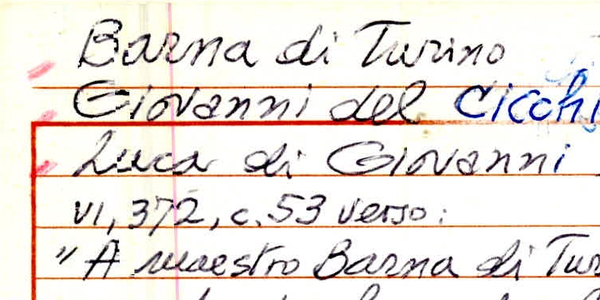 Barna di Turino
Giovanni del Cicchi
Luca di Giovanni
VI, 372, c. 53 verso:
"A maestro Barna di Tur